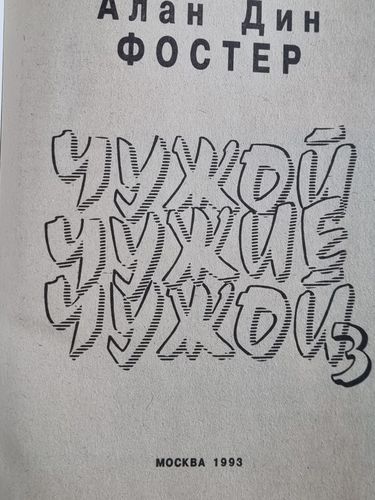 Алан Дин
ФОСТЕР
ЧУЖОЙ
ЧУЖИЕ
ЧУЖОЙ 3
МОСКВА 1993